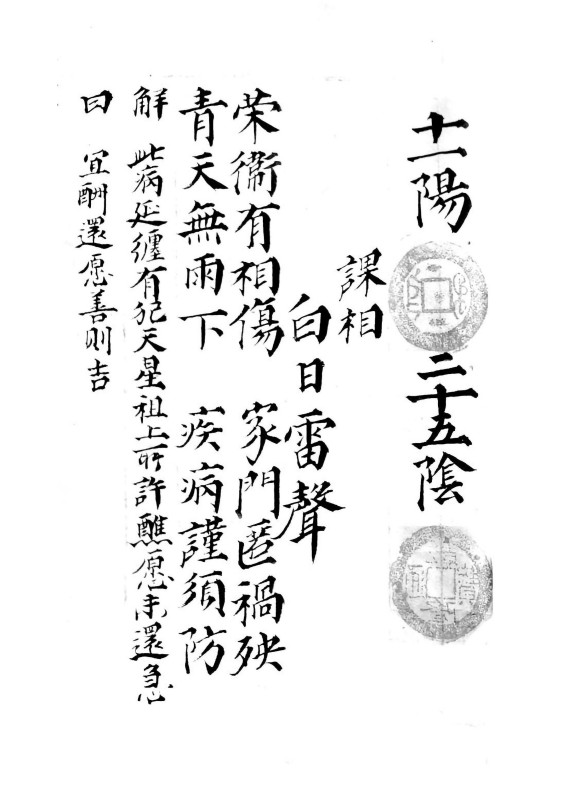 十一陽 二十五陰
課相
白日雷聲
荣衛有相傷 家門匿禍殃
青天無雨下 疾病謹須防
解 此病延纏有犯天星祖上所許醮愿未還急
曰 宜酬還愿善則吉